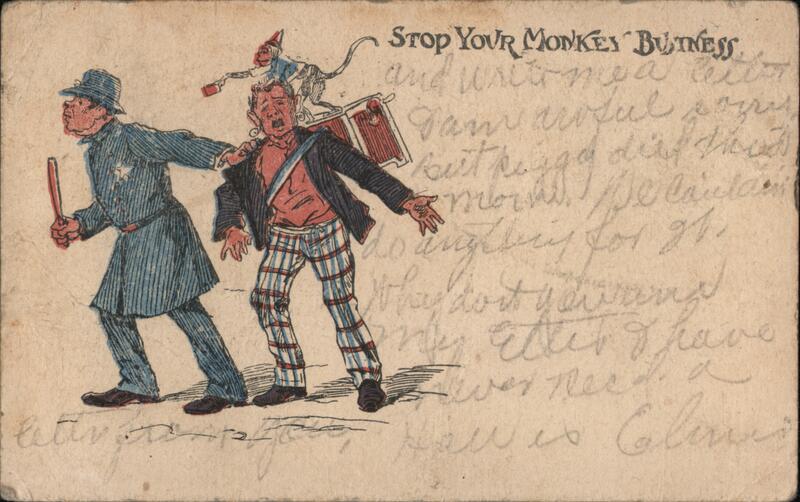 STOP YOUR MONKEY BUSINESS
and write me a letter
I am awful sorry
but peggy died this
morn. We
do anything for it.
Why dont you
my I have
never rec'd a
letter from you,
How is